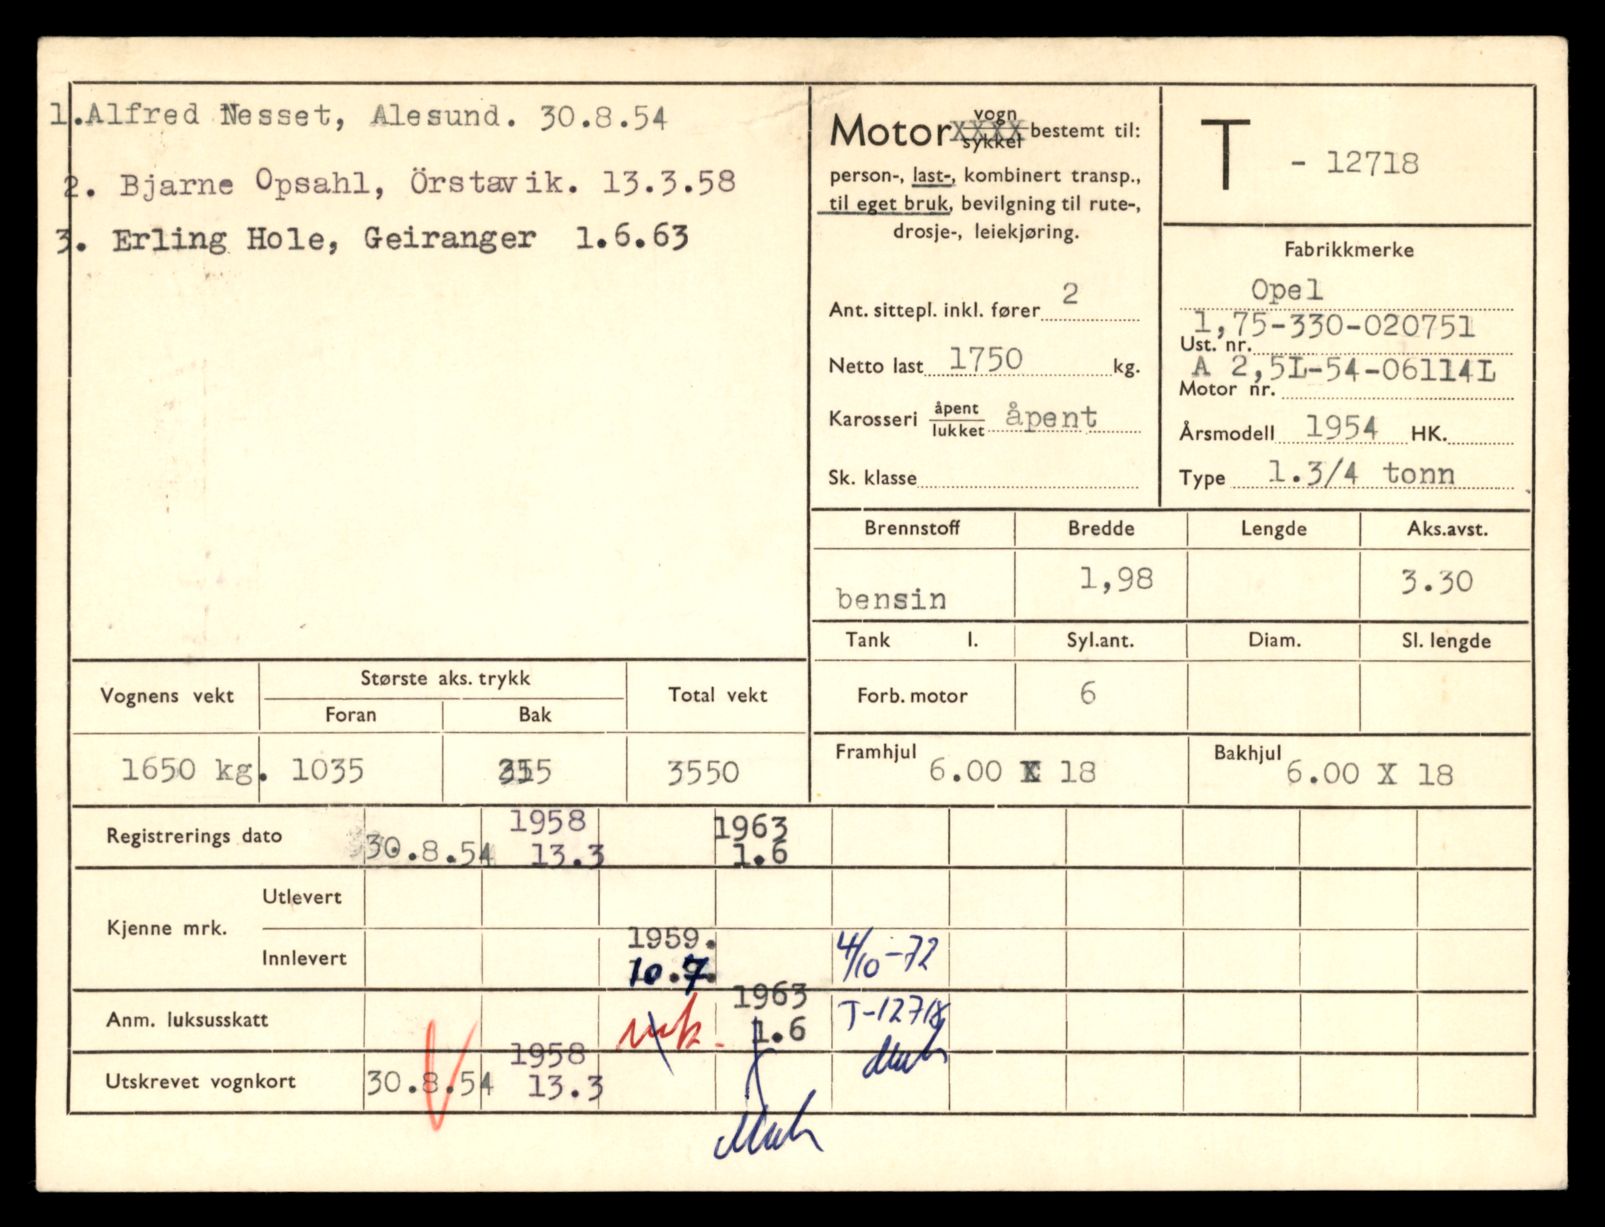 1.Alfred Nesset, Alesund. 30.8.54
2. Bjarne Opsahl, Örstavik. 13.3.58
3. Erling Hole, Geiranger 1.6.63
Motor vogn sykkel bestemt til:
person-, last-, kombinert transp.,
til eget bruk, bevilgning til rute-,
drosje-, leiekjøring.
Ant. sittepl. inkl. fører 2
Netto last 1750 kg.
Karosseri åpent lukket åpent
Sk. klasse
T - 12718
Fabrikkmerke
Opel
1,75-330-020751
Ust. nr.
A 2,5L-54-06114L
Motor nr.
Årsmodell 1954 HK.
Type 1.3/4 tonn
Brennstoff Bredde Lengde Aks.avst.
bensin 1,98 3.30
Tank l. Syl.ant. Diam. Sl. lengde
Forb. motor 6
Framhjul 6.00 X 18 Bakhjul 6.00 X 18
Vognens vekt Største aks. trykk Total vekt
Foran Bak
1650 kg. 1035 3550
Registrerings dato 30.8.54 1958 13.3 1963 1.6
Kjenne mrk. Utlevert
Innlevert 1959. 10.7. 4/10-72
Anm. luksusskatt 1963 1.6 T-12718
Utskrevet vognkort 30.8.54 1958 13.3